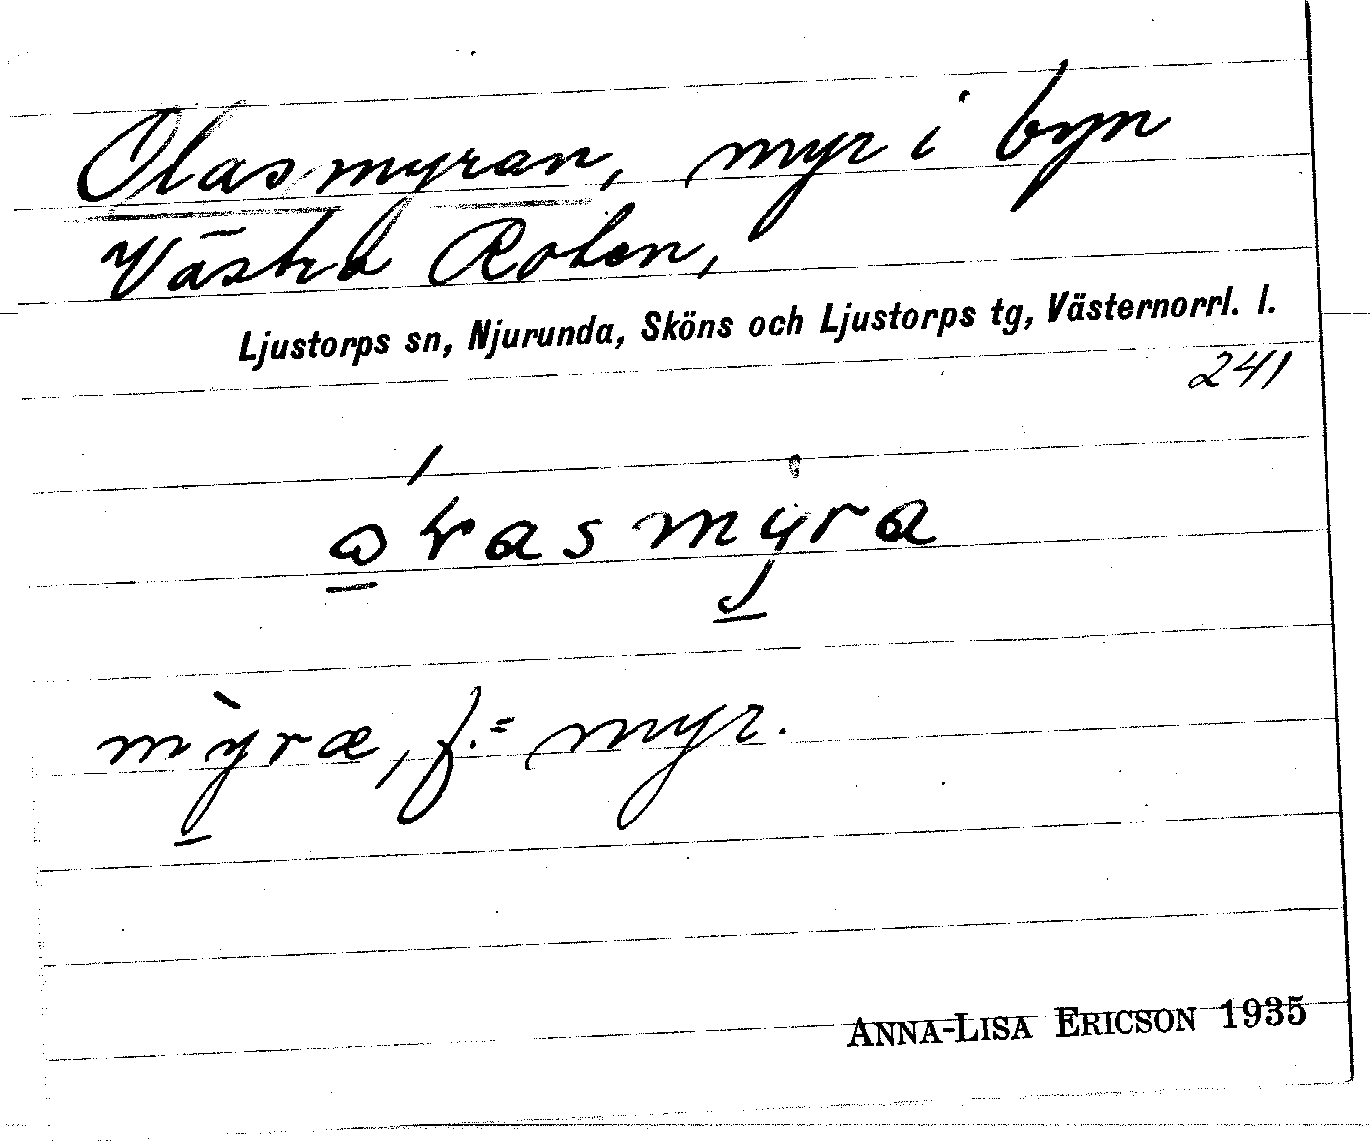 Olasmyran, myr i byn
Västra Roten,
Ljustorps sn, Njurunda, Sköns och Ljustorps tg, Västernorrl. l.
241
myr.
ANNA-LISA ERICSON 1935